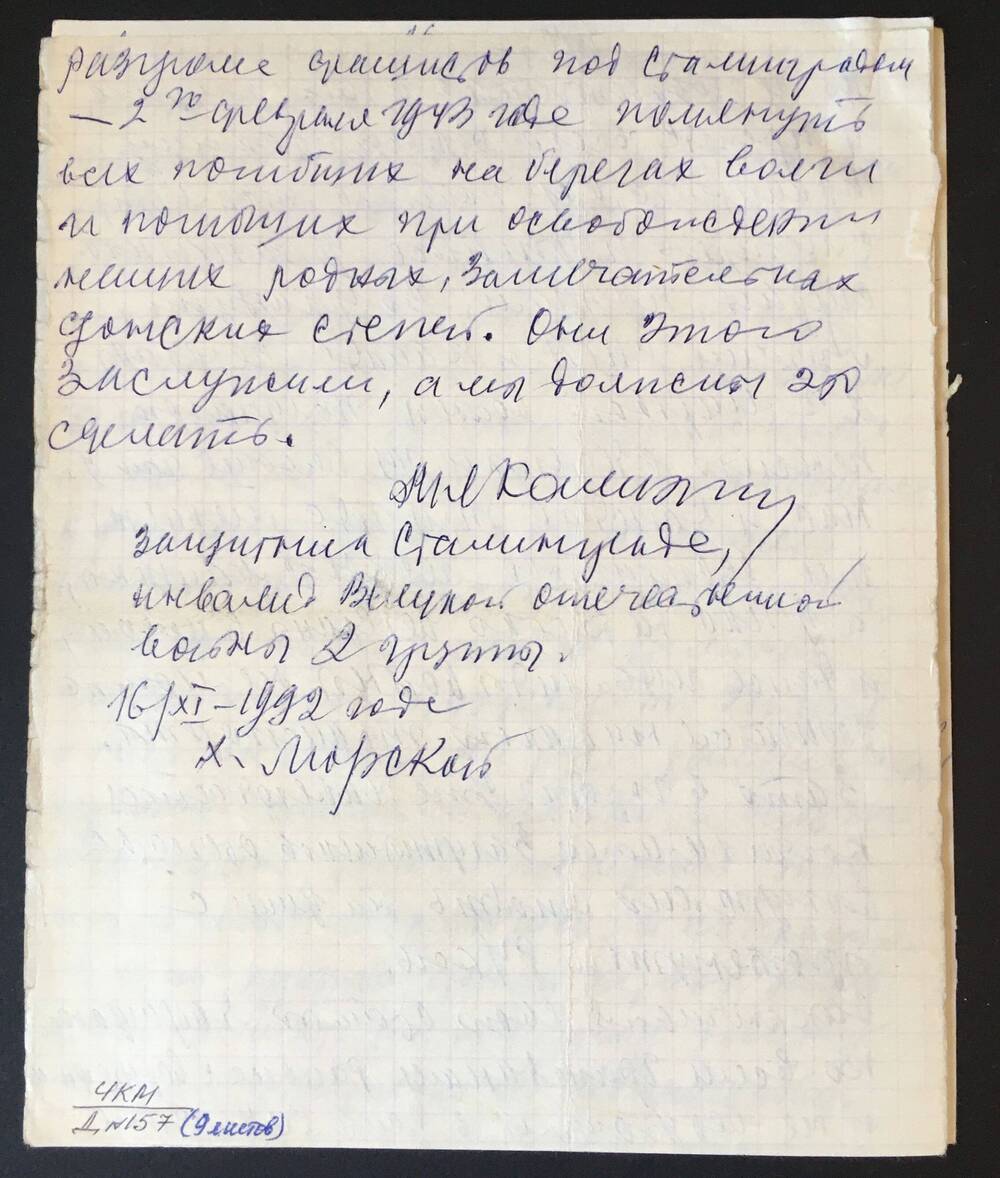 разгроме фашистов под Сталинградом
— 2го февраля 1943 года помянуть
всех погибших на берегах волги
и погибших при освобождении
наших родных, замечательных
донских степей. Они этого
заслужили, а мы должны это
сделать.
Калинин
защитник Сталинграда,
инвалид Великой отечественной
войны 2 группы.
16/XI-1992 года
х. Морской
ЧКМ
Д №157 (9 листов)